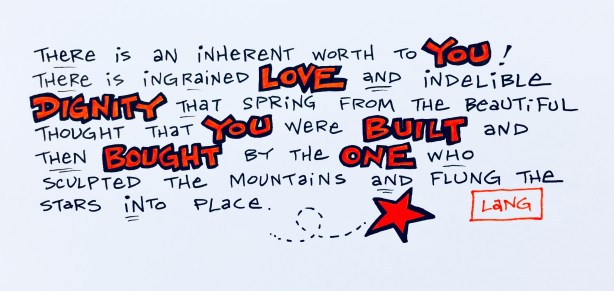 THERE iS AN iNHERENT WORTH TO YOU!
THERE iS iNGRAiNED LOVE AND iNDELiBLE
DiGNiTY THAT SPRiNG FROM THE BEAUTiFUL
THOUGHT THAT YOU WERE BUiLT AND
THEN BOUGHT BY THE ONE WHO
SCULPTED THE MOUNTAiNS AND FLUNG THE
STARS iNTO PLACE.
LANG